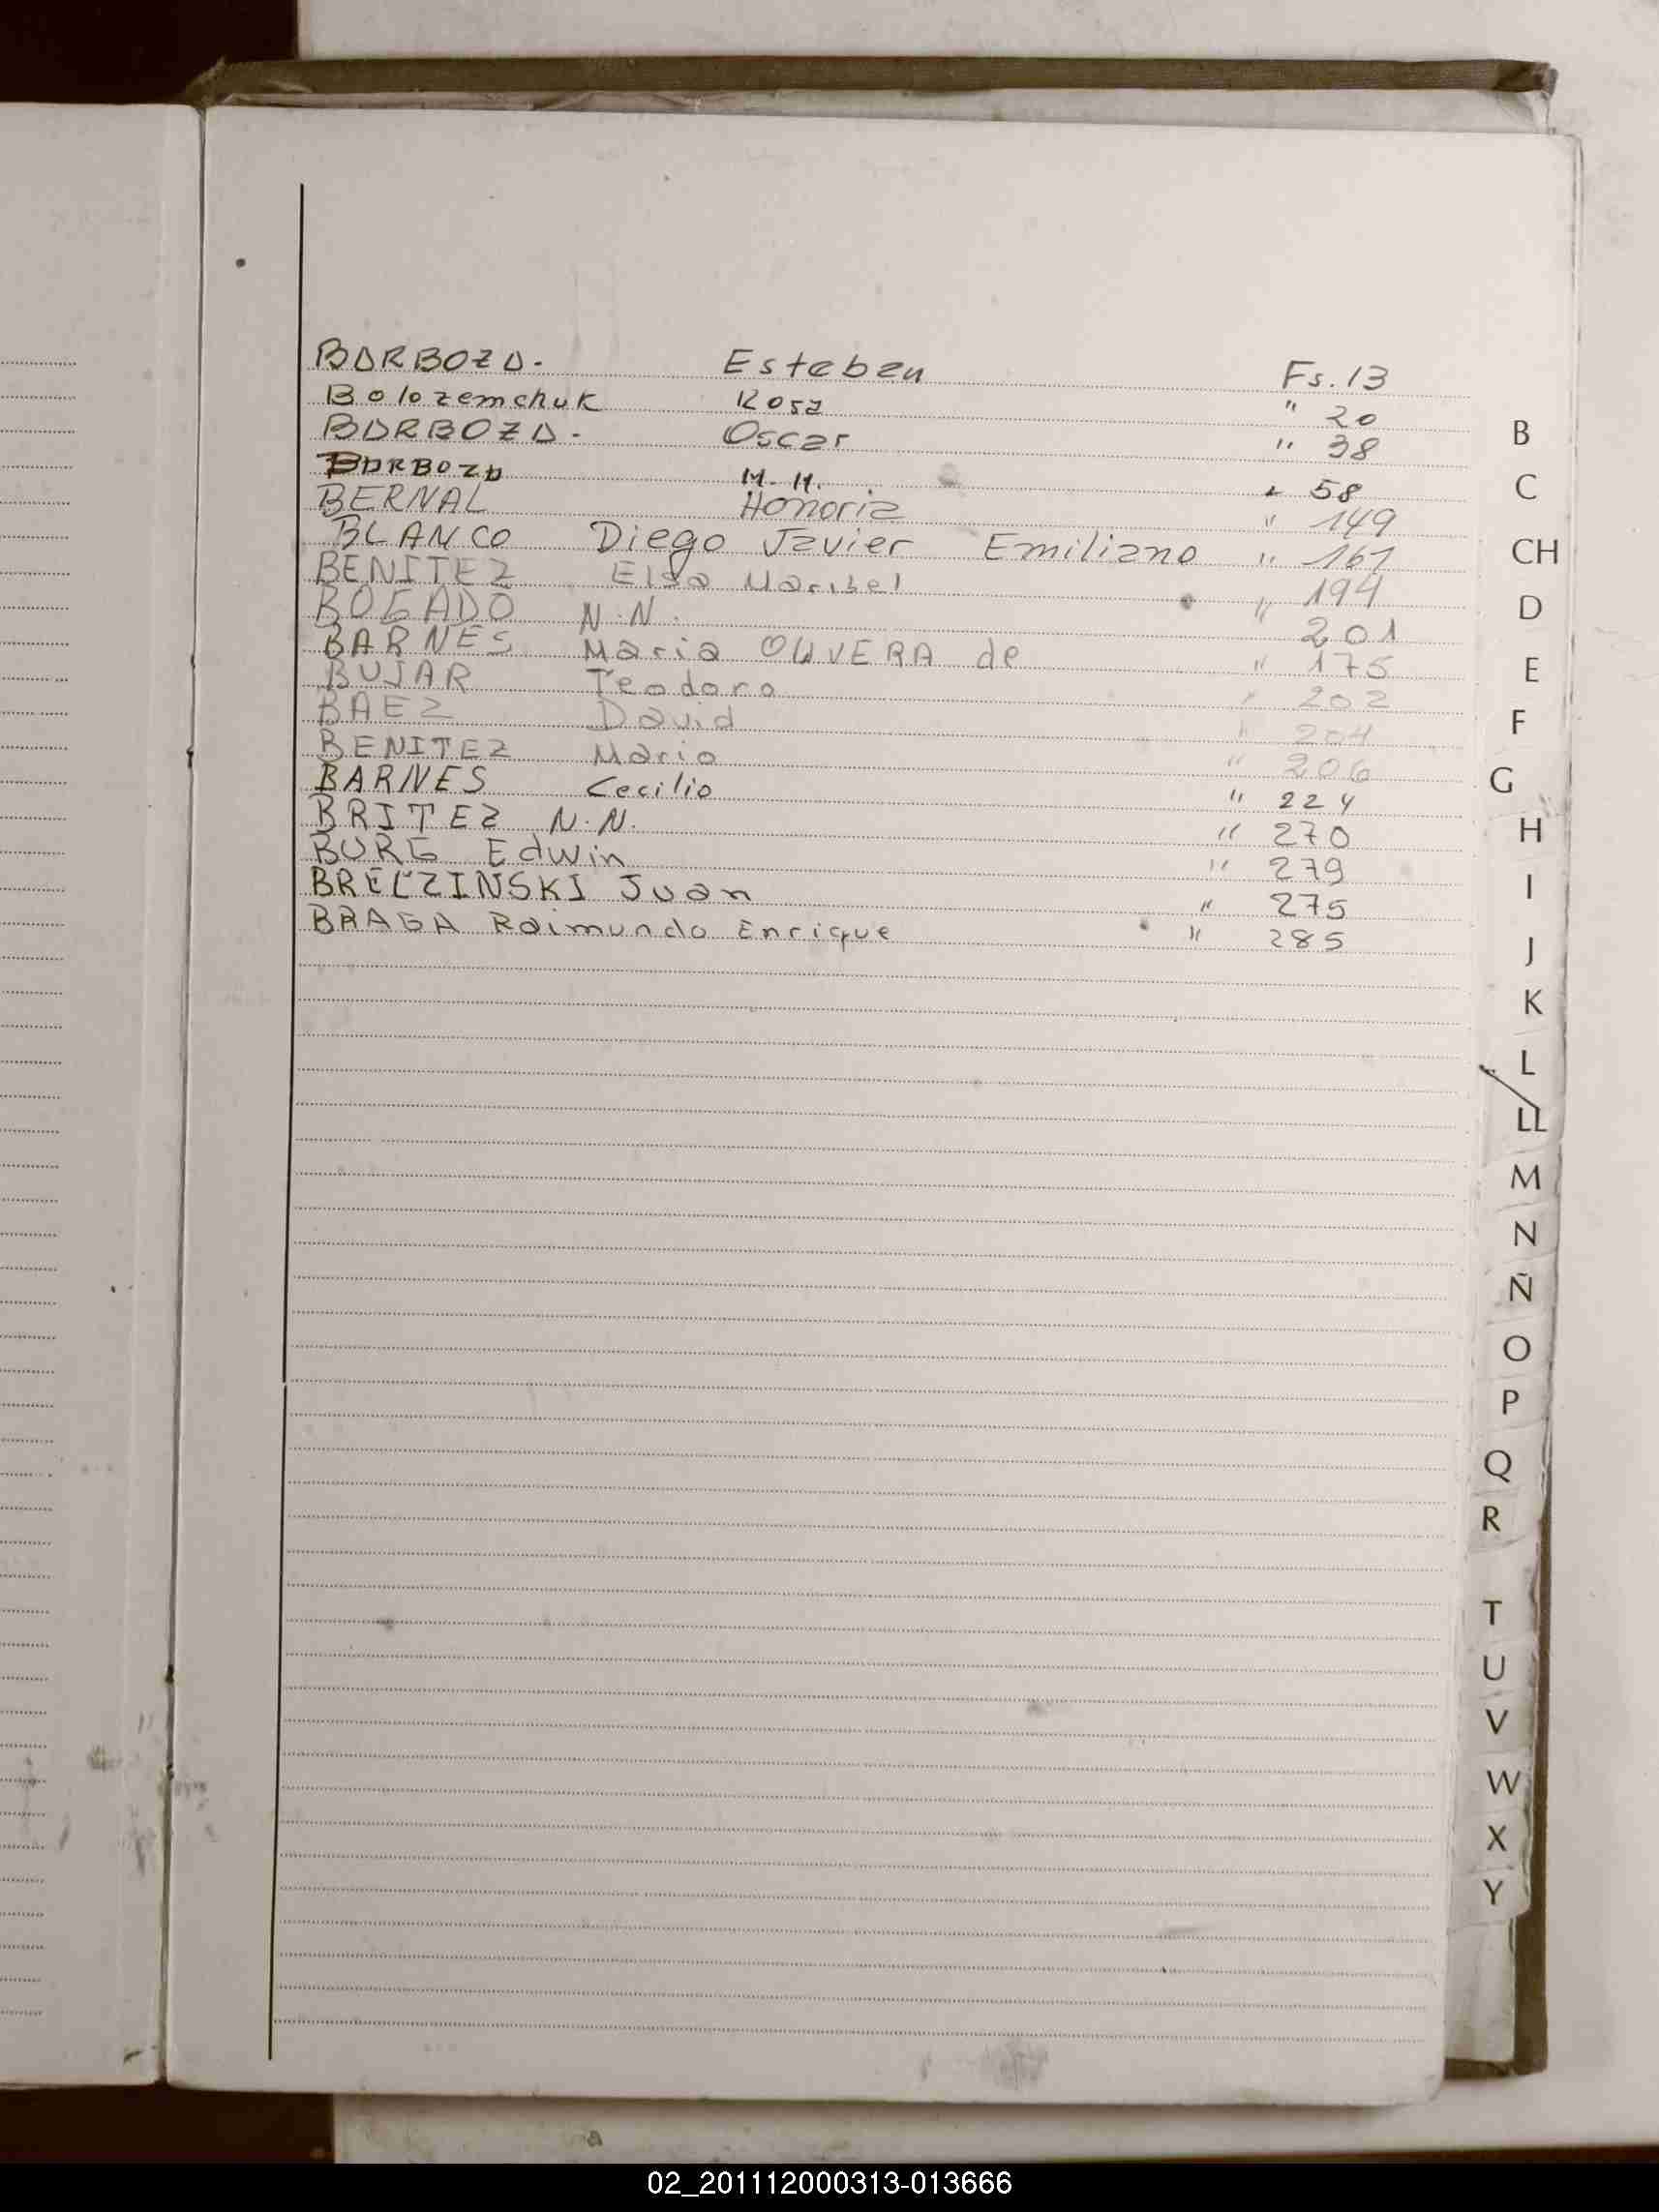 BARBOZA. Esteban Fs. 13
Bolozemchuk Rosa " 20
BARBOZA. Oscar " 38
BARBOZA M. H. " 58
BERNAL Honoria " 149
BLANCO Diego Javier Emiliano " 161
BENITEZ Elsa Maribel " 194
BOGADO N.N. " 201
BARNES Maria OLIVERA de " 175
BUJAR Teodoro " 202
BAEZ David " 204
BENITEZ Mario " 206
BARNES Cecilio " 224
BRITEZ N.N. " 270
BURG Edwin " 279
BRELZINSKI Juan " 275
BRAGA Raimundo Enrique " 285
B
C
CH
D
E
F
G
H
I
J
K
L
LL
M
N
Ñ
O
P
Q
R
T
U
V
W
X
Y
02_201112000313-013666